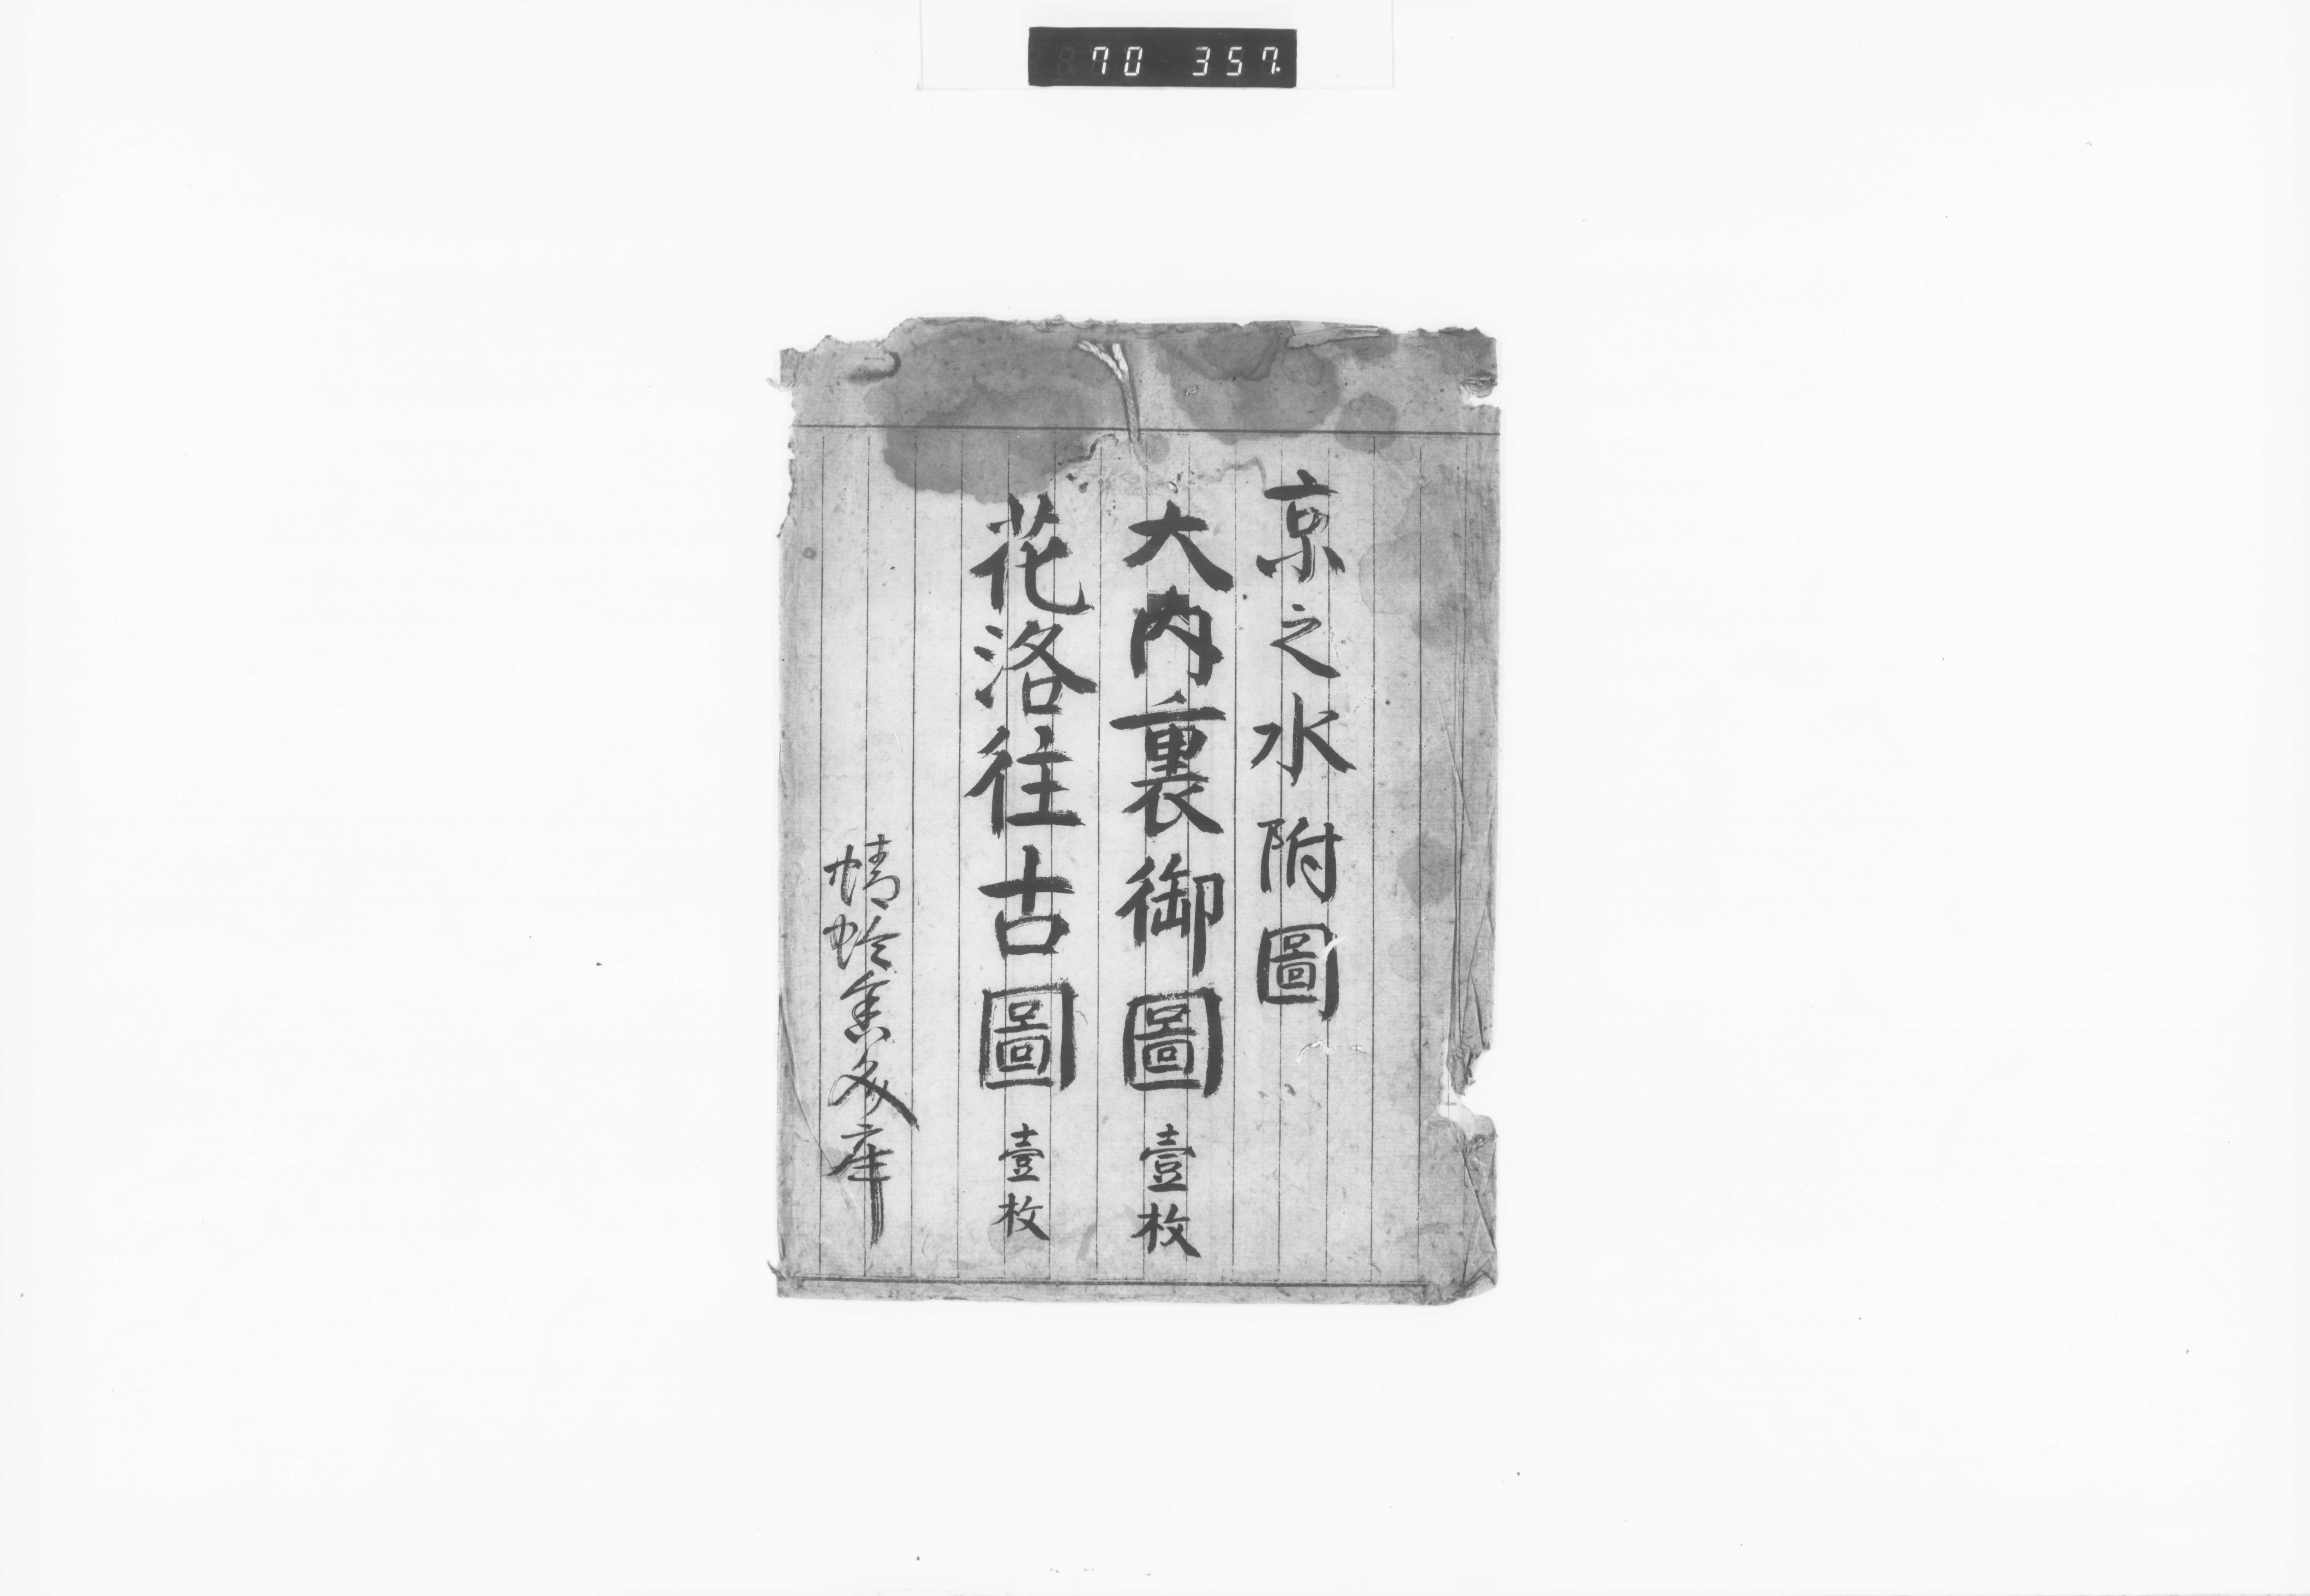 70 357.
京之水附圖
大内裏御圖 壹枚
花洛往古圖 壹枚
蜻蛉舎文庫